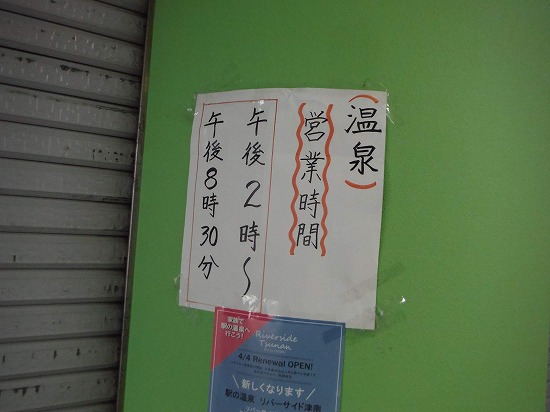 (温泉)
営業時間
午後2時〜
午後8時30分
家族で
駅の温泉へ
行こう!
Riverside
Tsunan
4/4 Renewal OPEN!
新しくなります
駅の温泉 リバーサイド津南